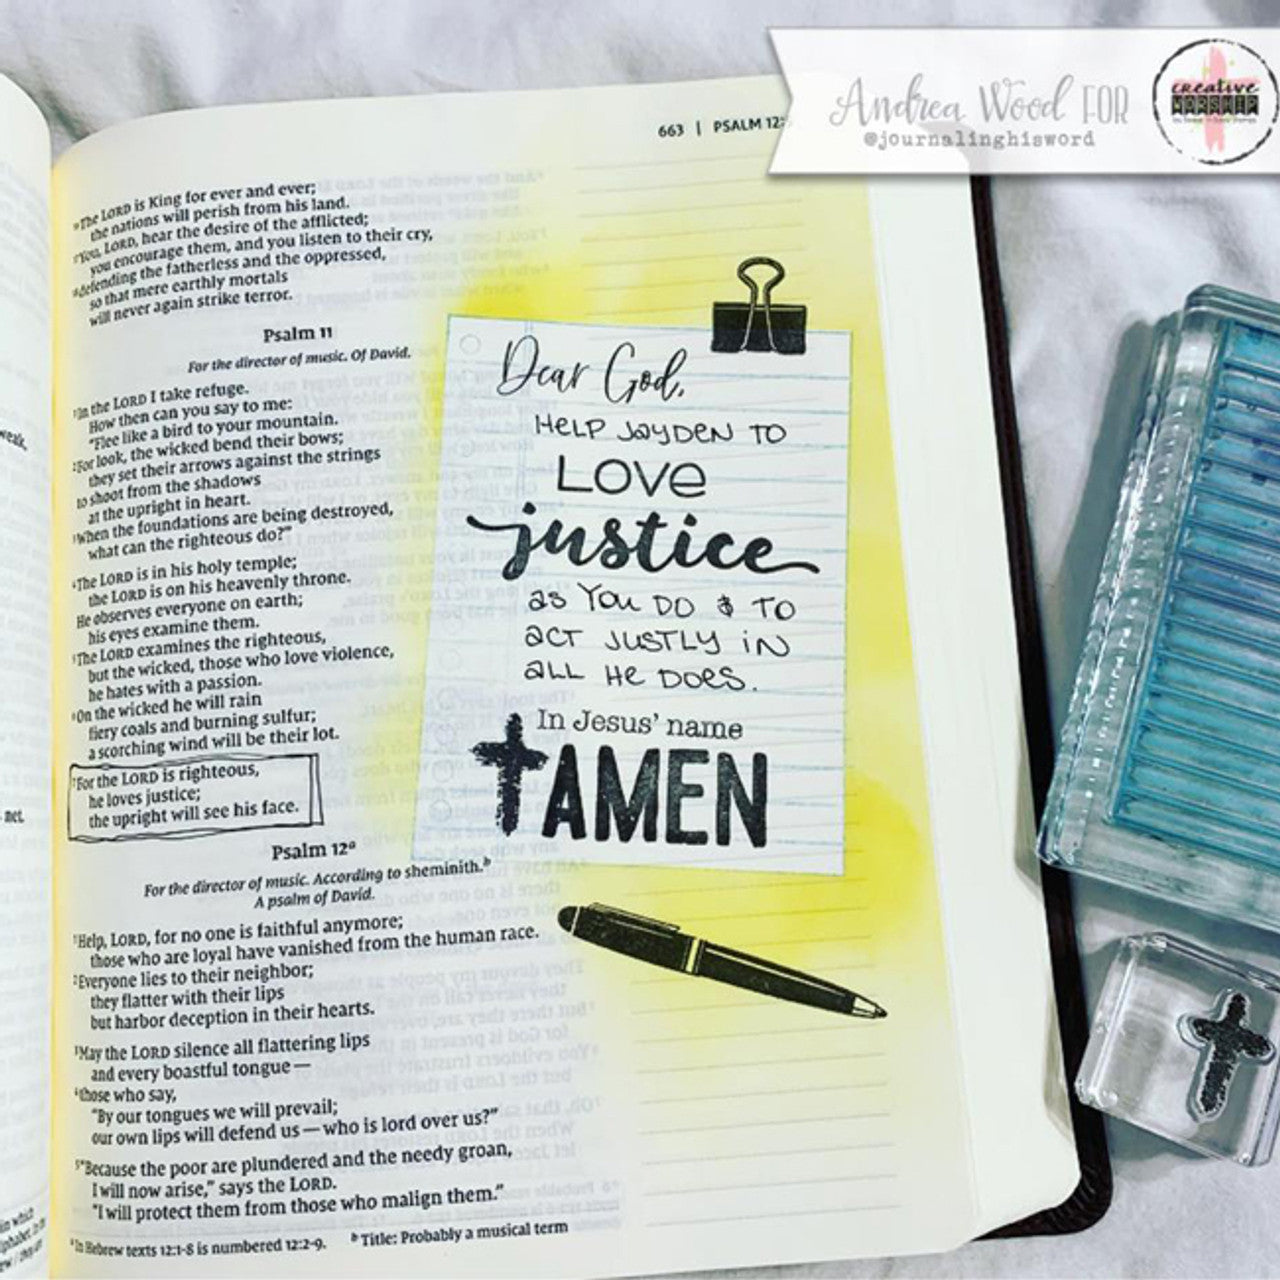 Andrea Wood FOR
@journalinghisword
creative
WORSHIP
663 | PSALM 12:
¹⁶The LORD is King for ever and ever;
the nations will perish from his land.
¹⁷You, LORD, hear the desire of the afflicted;
you encourage them, and you listen to their cry,
¹⁸defending the fatherless and the oppressed,
so that mere earthly mortals
will never again strike terror.
Psalm 11
For the director of music. Of David.
¹In the LORD I take refuge.
How then can you say to me:
“Flee like a bird to your mountain.
²For look, the wicked bend their bows;
they set their arrows against the strings
to shoot from the shadows
at the upright in heart.
³When the foundations are being destroyed,
what can the righteous do?”
⁴The LORD is in his holy temple;
the LORD is on his heavenly throne.
He observes everyone on earth;
his eyes examine them.
⁵The LORD examines the righteous,
but the wicked, those who love violence,
he hates with a passion.
⁶On the wicked he will rain
fiery coals and burning sulfur;
a scorching wind will be their lot.
⁷For the LORD is righteous,
he loves justice;
the upright will see his face.
Psalm 12ᵃ
For the director of music. According to sheminith.ᵇ
A psalm of David.
¹Help, LORD, for no one is faithful anymore;
those who are loyal have vanished from the human race.
²Everyone lies to their neighbor;
they flatter with their lips
but harbor deception in their hearts.
³May the LORD silence all flattering lips
and every boastful tongue —
⁴those who say,
“By our tongues we will prevail;
our own lips will defend us — who is lord over us?”
⁵“Because the poor are plundered and the needy groan,
I will now arise,” says the LORD.
“I will protect them from those who malign them.”
ᵃ In Hebrew texts 12:1-8 is numbered 12:2-9. ᵇ Title: Probably a musical term
Dear God,
HELP JAYDEN TO
LOVE
justice
as You DO & TO
aCT JUSTLY iN
aLL He Does.
In Jesus’ name
AMEN